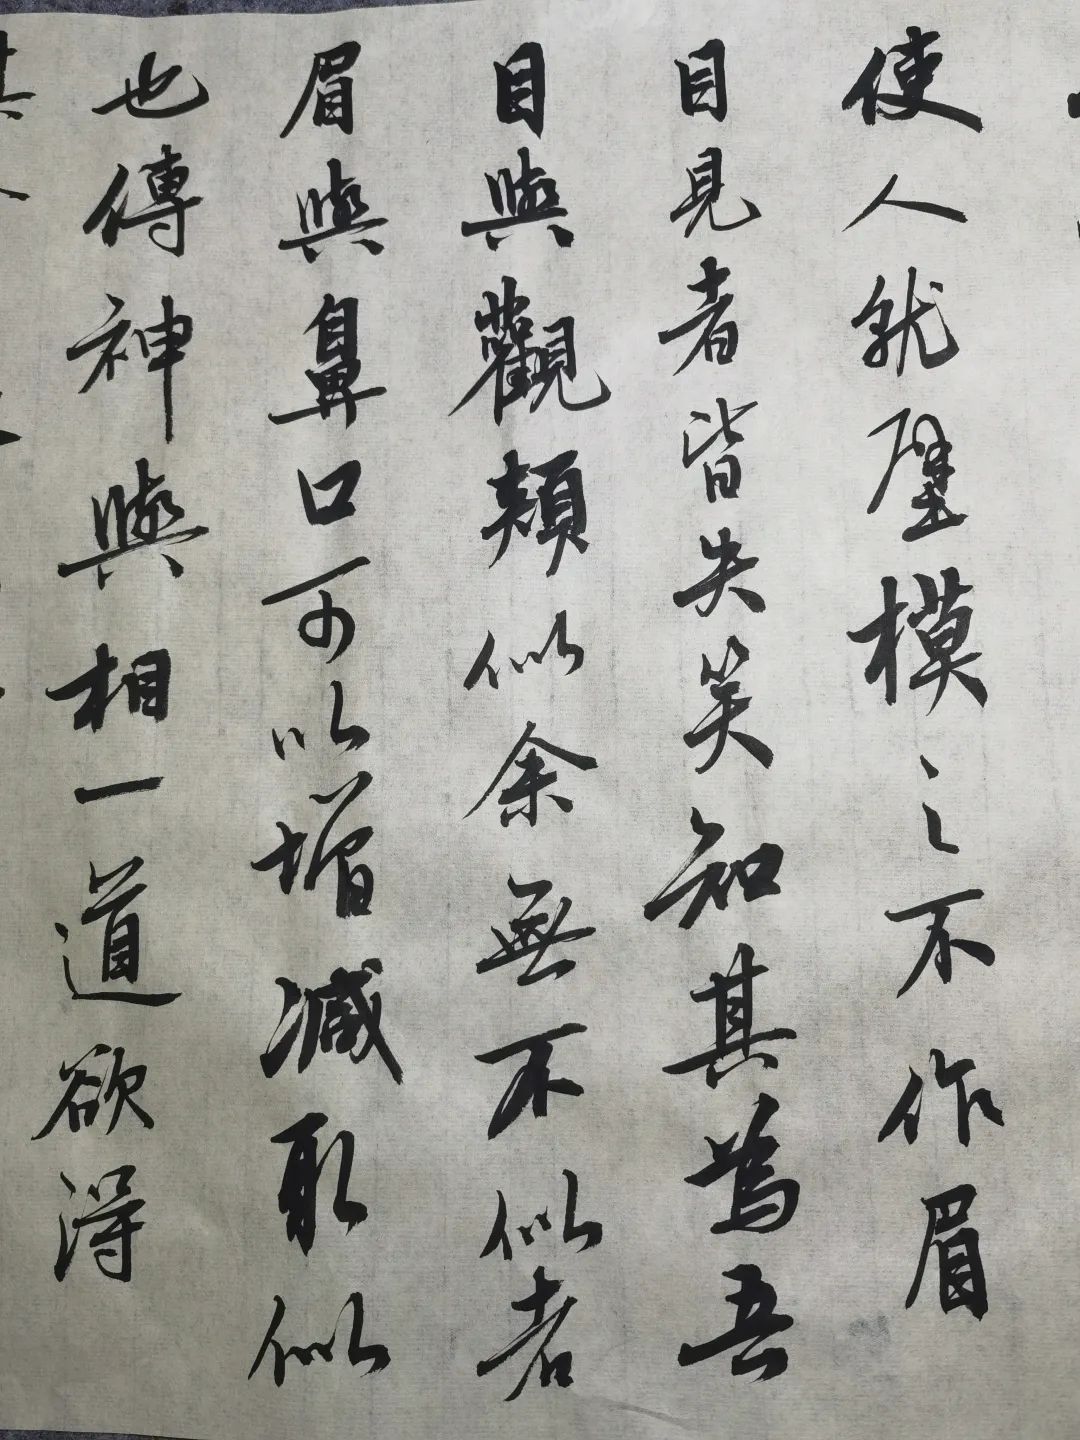 使人就壁模之不作眉
目見者皆失笑知其為吾
目與觀頰似余無不似者
眉與鼻口可以增減取似
也傳神與相一道欲得